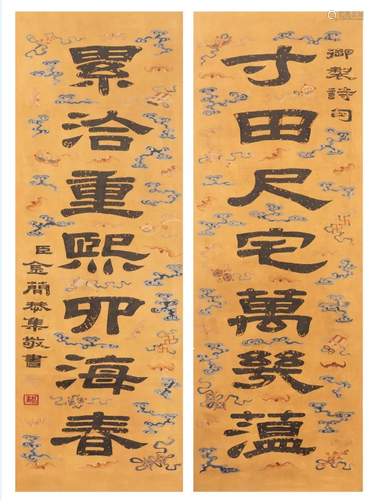 御製詩句
寸田尺宅萬幾蘊
累洽重熙四海春
臣金簡恭集敬書